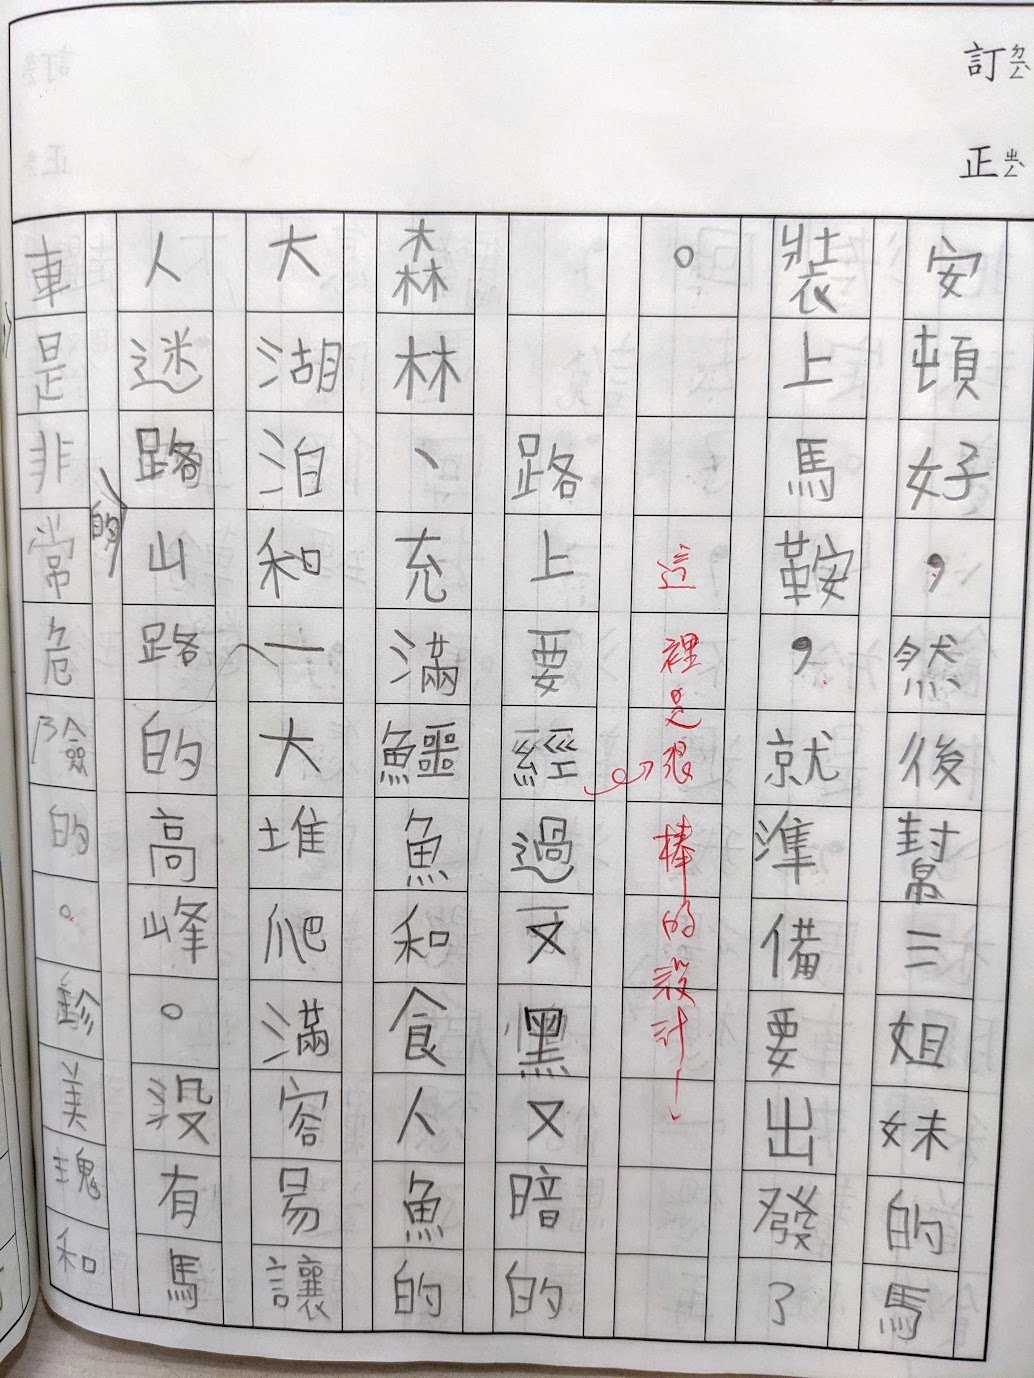 訂ㄉㄧㄥˋ正ㄓㄥˋ
安頓好，然後幫三姐妹的馬
裝上馬鞍，就準備要出發了
。
這裡是很棒的設計！
路上要經過又黑又暗的
森林、充滿鱷魚和食人魚的
大湖泊和一大堆爬滿容易讓
人迷路山路的高峰。沒有馬
的
車是非常危險的。鉁美瑰和